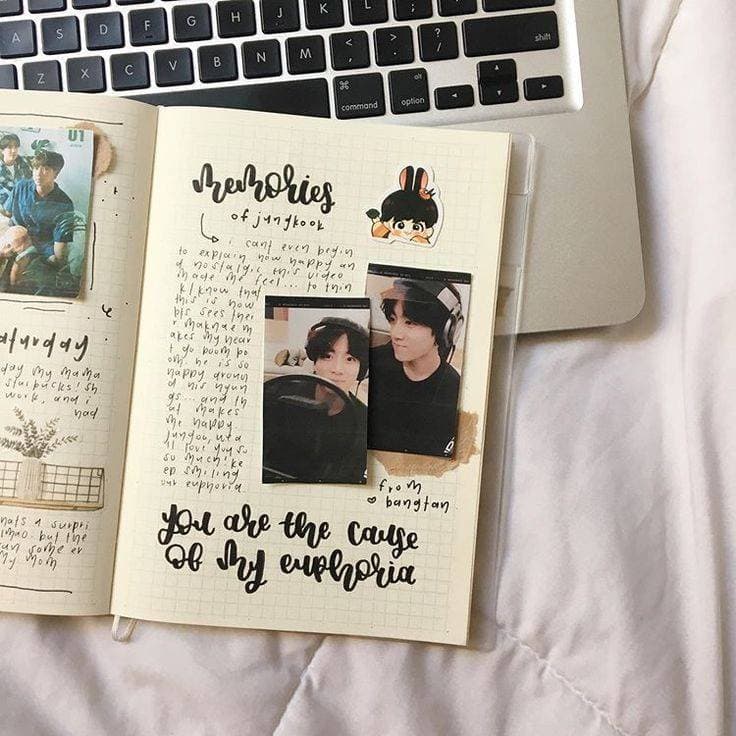 A S D F G H J K L
Z X C V B N M < , > . ? / shift
⌘ command option
U1
aturday
day my mama
starbucks! sh
work, and i
had
hats a surpri
lmao. but the
an some er
my mom
memories
of jungkook
i cant even begin
to explain how happy an
d nostalgic this video
made me feel... to thin
k/know that
this is how
bts sees thei
r maknae m
akes my hear
t go boom bo
om. he is so
happy aroun
d his hyun
gs... and th
at makes
me happy.
jungoo, wta
ll love you s
so much. ke
ep smiling
our euphoria.
from
bangtan
you are the cause
of my euphoria